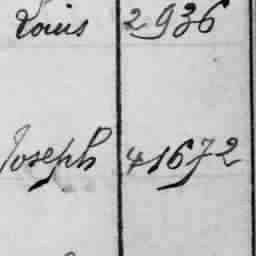 Louis 2936
Joseph 41672